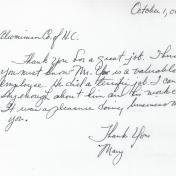 October 1, 0
Aluminum Co. of N.C.
Thank you for a great job. I think
you must know Mr. is a valuable
employee. He did a terrific job. I can't
say enough about him and his work.
It was a pleasure doing business with
you.
Thank You
Mary